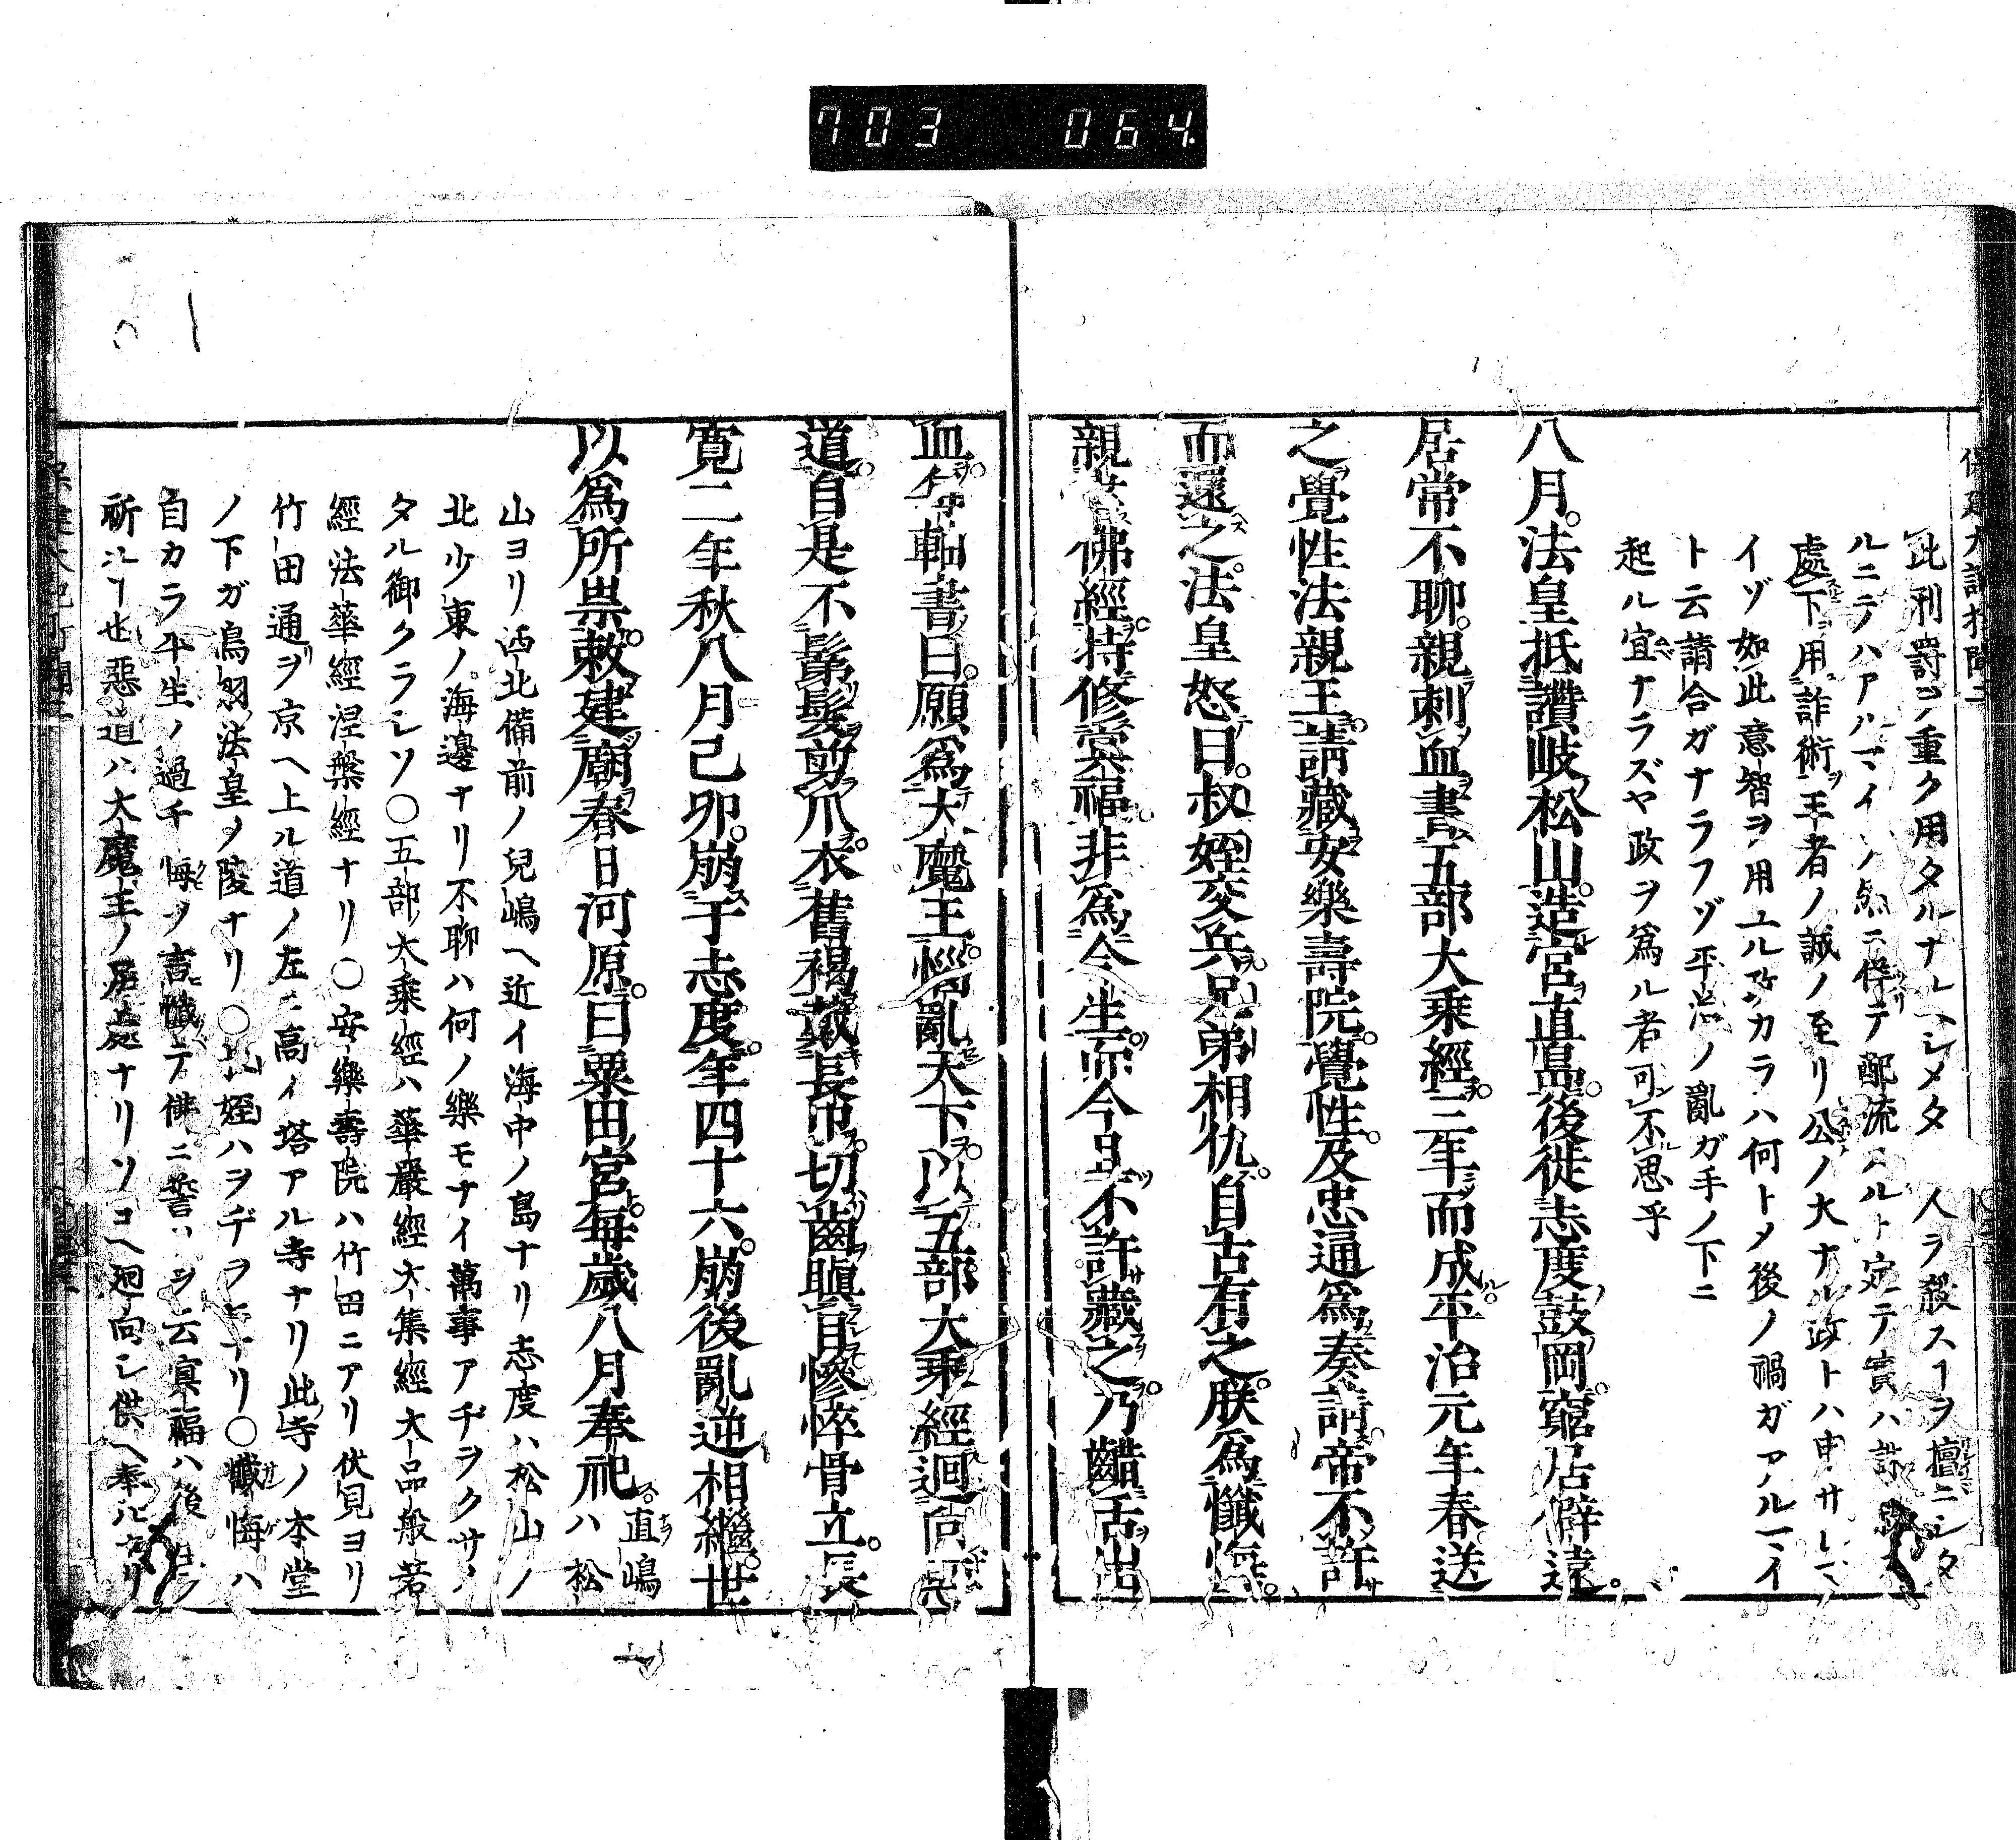 703 064
此刑罸ヲ重ク用タルナルヘシメタ 人ヲ殺スヿヲ檀ニシタ
ルニテハアルマイ ニ侫テ配流スルト定テ實ハ誅
處下用詐術王者ノ誠ノ至リ公ノ大ナル政トハ申サレマ
イゾ如此意智ヲ用ユル故カラハ何トメ後ノ禍ガアルマイ
ト云請合ガナラフゾ平治ノ亂ガ手ノ下ニ
起ル宜ナラズヤ政ヲ爲ル者可不思乎
八月法皇抵讚岐松山造宮直島後徙志度鼓岡窮居僻遠
居常不聊親刺血書五部大乗經三年而成平治元年春送
之覺性法親王請藏安樂壽院覺性及忠通爲奏請帝不許
而還之法皇怒曰叔姪交兵兄弟相仇自古有之朕爲懺悔
親 佛經持修冥福非爲今生而今且不許藏之乃齰舌出
血 軸書曰願爲大魔王惱亂天下以五部大乗經迴向惡
道自是不鬀髮剪爪衣舊褐蒇長巾切齒瞋目慘悴骨立長
寛二年秋八月己卯崩于志度年四十六崩後亂逆相繼世
以爲所祟敕建廟春日河原曰粟田宮毎歳八月奉祀 直嶋ハ松
山ヨリ西北備前ノ兒嶋ヘ近イ海中ノ島ナリ志度ハ松山ノ
北少東ノ海邊ナリ不聊ハ何ノ樂モナイ萬事アヂヲクサノ
タル御クラシソ〇五部大乗經ハ華嚴經大集經大品般若
經法華經涅槃經ナリ〇安樂壽院ハ竹田ニアリ伏見ヨリ
竹田通ヲ京ヘ上ル道ノ左ニ高イ塔アル寺ナリ此寺ノ本堂
ノ下ガ鳥羽法皇ノ陵ナリ〇 姪ハヲヂヲヒナリ〇懺悔ハ
自カラ平生ノ過チ 悔ノ言懺テ佛ニ誓ハヲ云冥福ハ後
祈ルヿ也惡道ハ大魔王ノ居處ナリソコヘ廻向シ供ヘ奉ルナリ